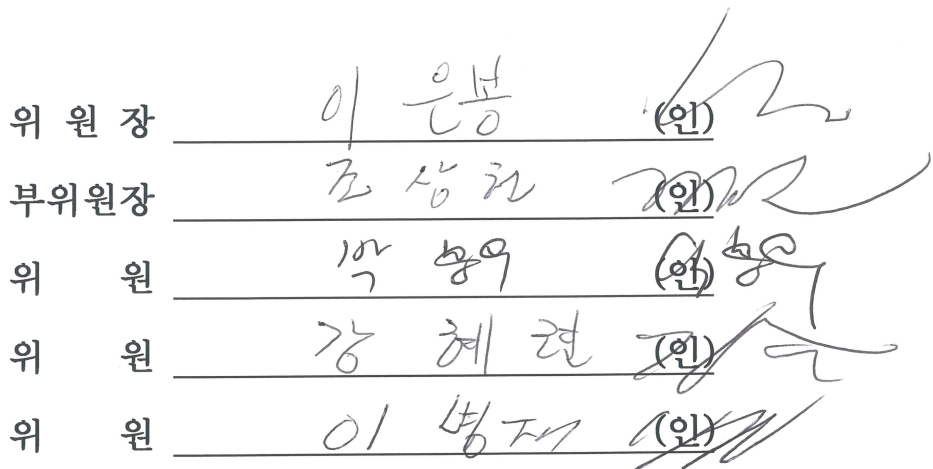 위 원 장 이 은봉 (인)
부위원장 조 상헌 (인)
위 원 박 (인)
위 원 강 혜 련 (인)
위 원 이 병재 (인)